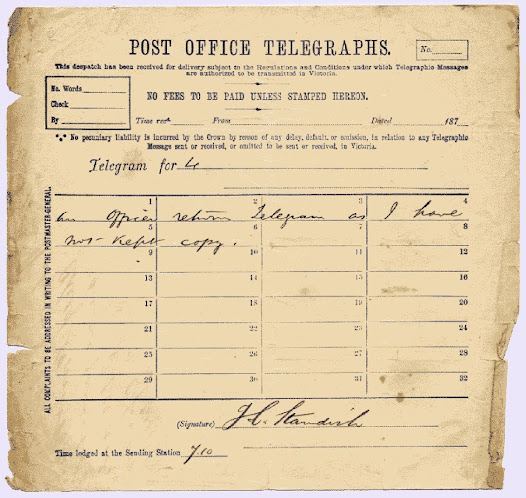 POST OFFICE TELEGRAPHS.
No.
This despatch has been received for delivery subject to the Regulations and Conditions under which Telegraphic Messages
are authorized to be transmitted in Victoria.
No. Words
Check
By
NO FEES TO BE PAID UNLESS STAMPED HEREON.
Time recd. From Dated 187
*** No pecuniary liability is incurred by the Crown by reason of any delay, default, or omission, in relation to any Telegraphic
Message sent or received, or omitted to be sent or received, in Victoria.
Telegram for
ALL COMPLAINTS TO BE ADDRESSED IN WRITING TO THE POSTMASTER-GENERAL.
1 2 3 4
an Officer return Telegram as I have
5 6 7 8
not kept copy.
9 10 11 12
13 14 15 16
17 18 19 20
21 22 23 24
25 26 27 28
29 30 31 32
(Signature) F. C. Standish
Time lodged at the Sending Station 7.10